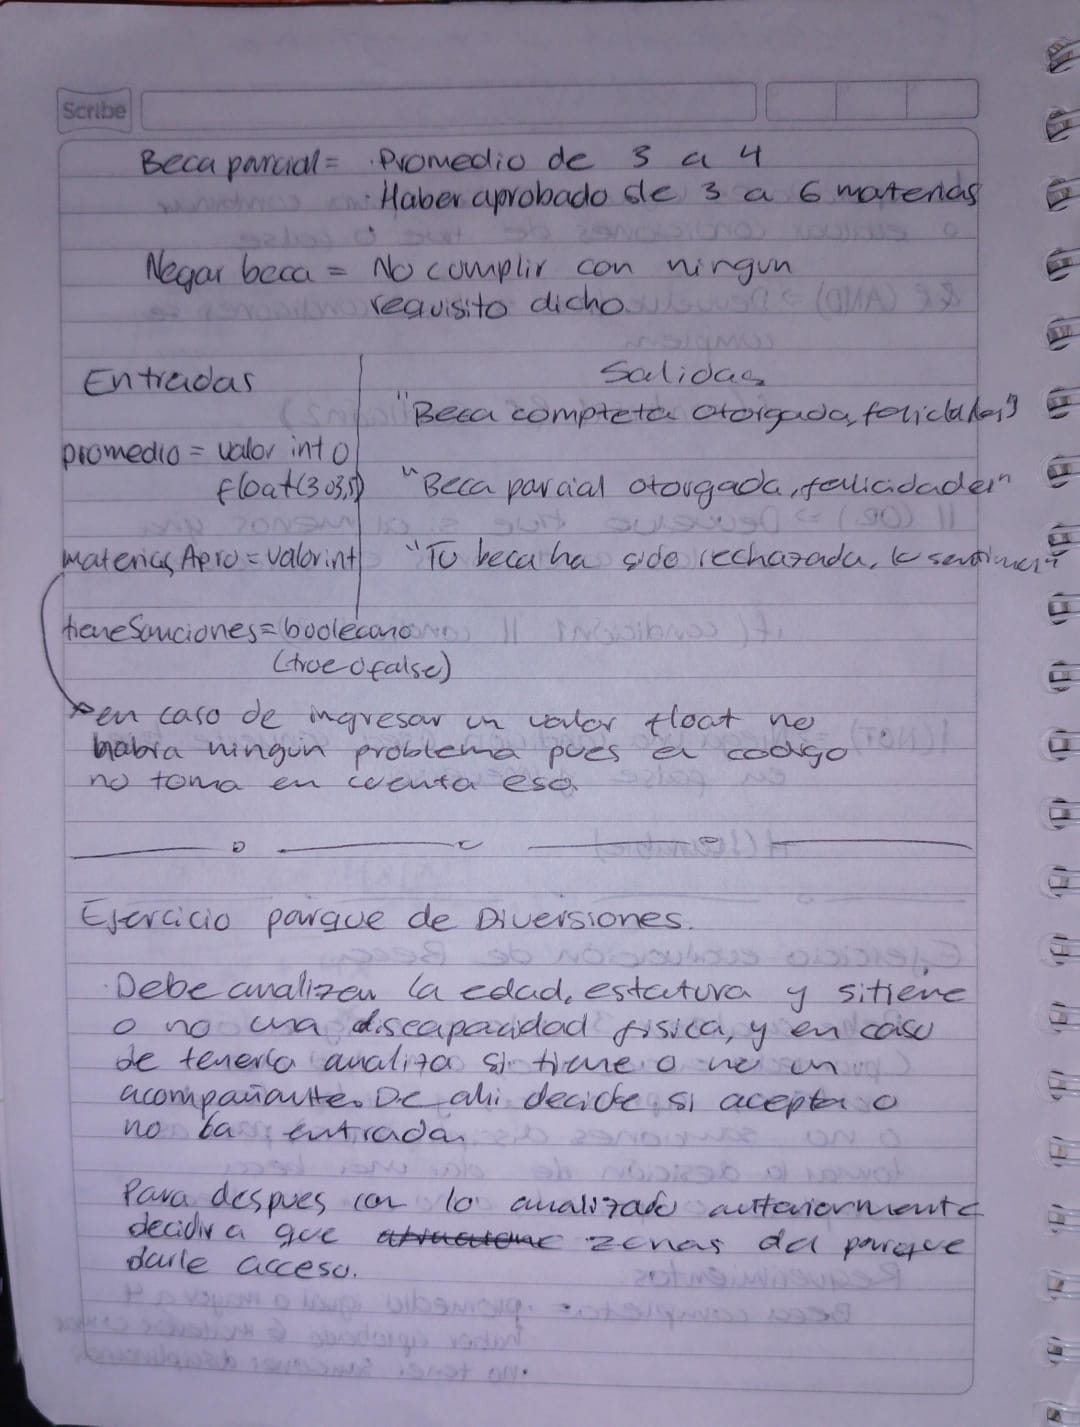 Scribe
Beca parcial = · Promedio de 3 a 4
· Haber aprobado de 3 a 6 materias
Negar beca = No cumplir con ningun
requisito dicho
Entradas
Salidas
"Beca completa otorgada, felicidades"
promedio = valor int o
float(3 o 3,5)
"Beca parcial otorgada, felicidades"
materiasApro = valor int
"Tu beca ha sido rechazada, lo sentimos"
tieneSanciones = booleano
(true o false)
en caso de ingresar un valor float no
habra ningun problema pues el codigo
no toma en cuenta eso.
Ejercicio parque de Diversiones.
· Debe analizar la edad, estatura y si tiene
o no una discapacidad fisica, y en caso
de tenerla analiza si tiene o no un
acompañante. De ahi decide si acepta o
no la entrada.
Para despues con lo analizado anteriormente
decidir a que zonas del parque
darle acceso.